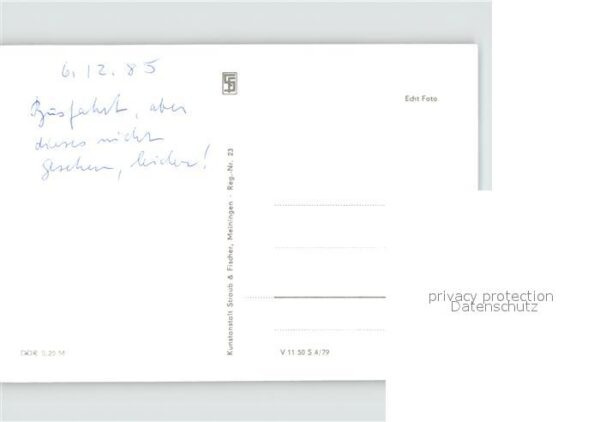 6.12.85
Busfahrt, aber
dieses nicht
gesehen, leider!
Echt Foto
Kunstanstalt Straub & Fischer, Meiningen · Reg.-Nr. 23
V 11 50 S 4/79
DDR 0,20 M
privacy protection
Datenschutz